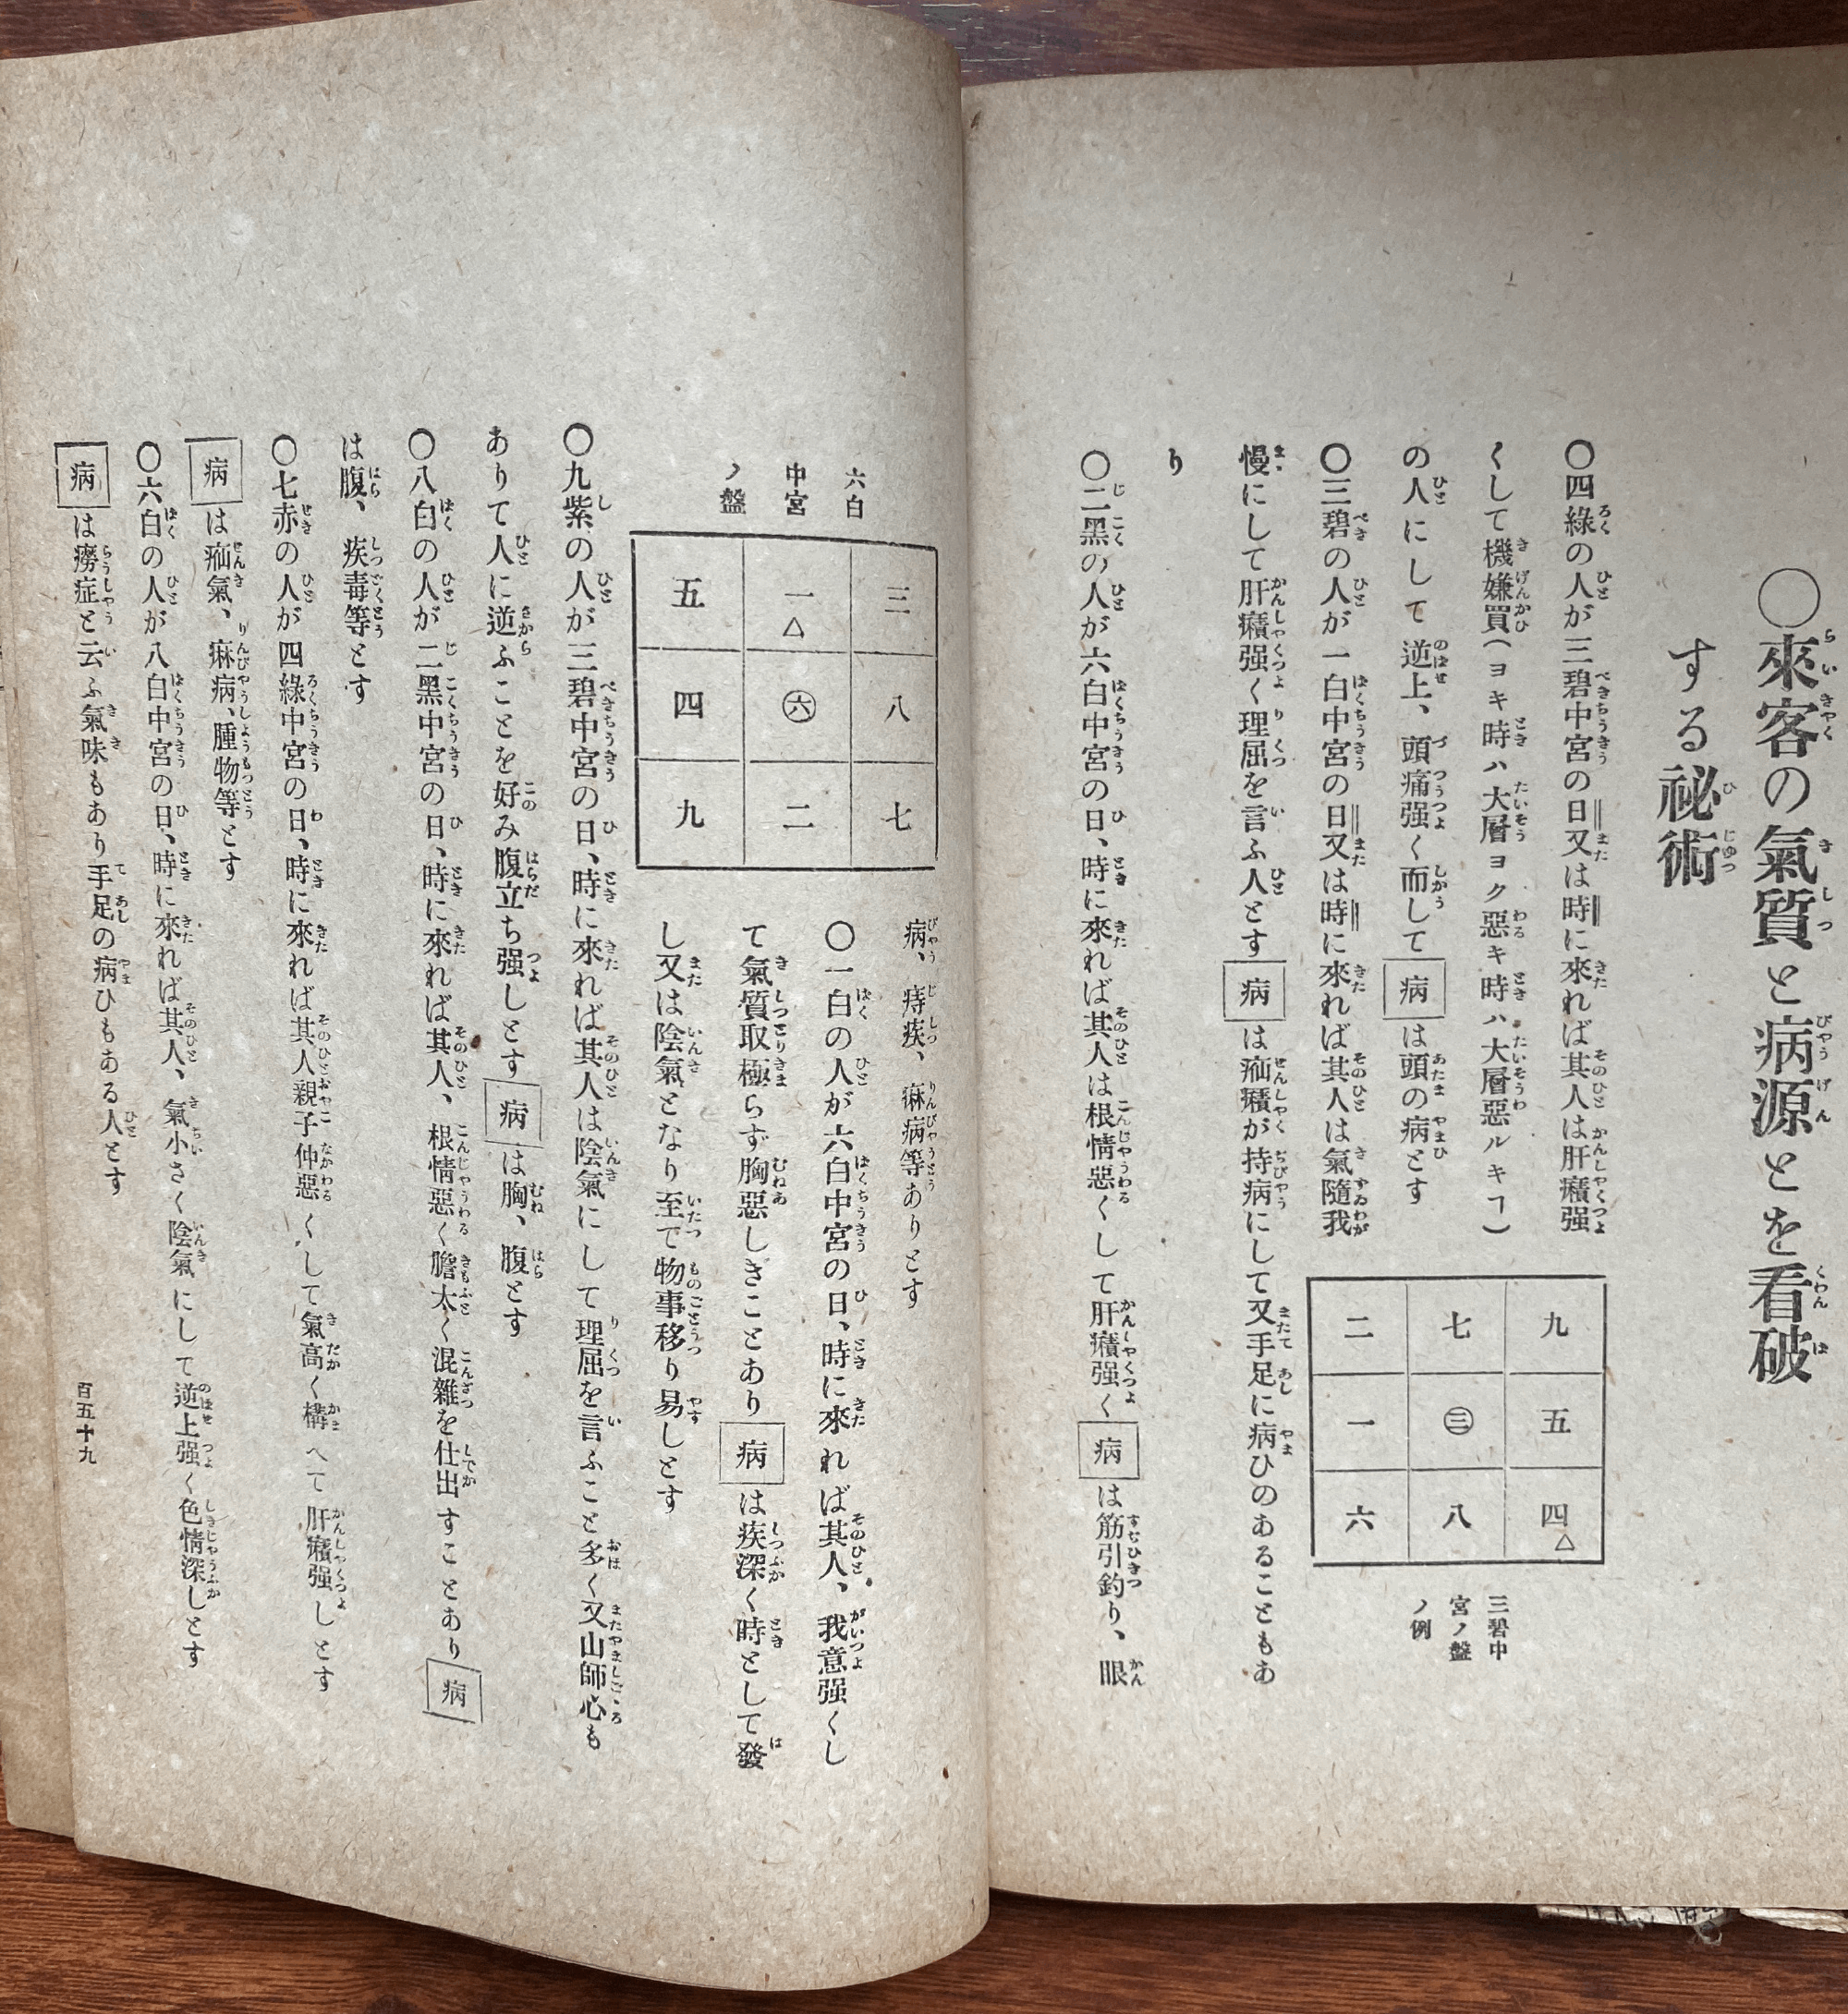 〇來客の氣質と病源とを看破
する祕術
〇四綠の人が三碧中宮の日又は時に來れば其人は肝癪强
くして機嫌買(ヨキ時ハ大層ヨク惡キ時ハ大層惡ルキヿ)
の人にして逆上、頭痛强く而して病は頭の病とす
九 七 二
五 ㊂ 一
四△ 八 六
三碧中
宮ノ盤
ノ例
〇三碧の人が一白中宮の日又は時に來れば其人は氣隨我
慢にして肝癪强く理屈を言ふ人とす病は疝癪が持病にして又手足に病ひのあることもあ
り
〇二黑の人が六白中宮の日、時に來れば其人は根情惡くして肝癪强く病は筋引釣り、眼
病、痔疾、痳病等ありとす
六白
中宮
ノ盤
三 一△ 五
八 ㊅ 四
七 二 九
〇一白の人が六白中宮の日、時に來れば其人、我意强くし
て氣質取極らず胸惡しきことあり病は疾深く時として發
し又は陰氣となり至て物事移り易しとす
〇九紫の人が三碧中宮の日、時に來れば其人は陰氣にして理屈を言ふこと多く又山師心も
ありて人に逆ふことを好み腹立ち强しとす病は胸、腹とす
〇八白の人が二黑中宮の日、時に來れば其人、根情惡く膽太く混雜を仕出すことあり病
は腹、疾毒等とす
〇七赤の人が四綠中宮の日、時に來れば其人親子仲惡くして氣高く構へて肝癪强しとす
病は疝氣、痳病、腫物等とす
〇六白の人が八白中宮の日、時に來れば其人、氣小さく陰氣にして逆上强く色情深しとす
病は癆症と云ふ氣味もあり手足の病ひもある人とす
百五十九